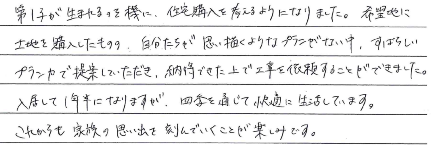 第1子が生まれるのを機に、住宅購入を考えるようになりました。希望地に
土地を購入したものの、自分たちが思い描くようなプランがでない中、すばらしい
プランカで提案していただき、納得できた上で工事を依頼することができました。
入居して1年半になりますが、四季を通じて快適に生活しています。
これからも家族の思い出を刻んでいくことが楽しみです。